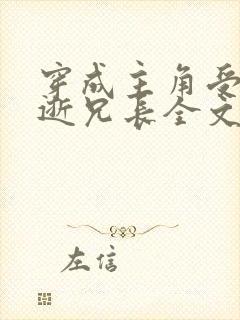 穿成主角受
逝兄长全文
左信